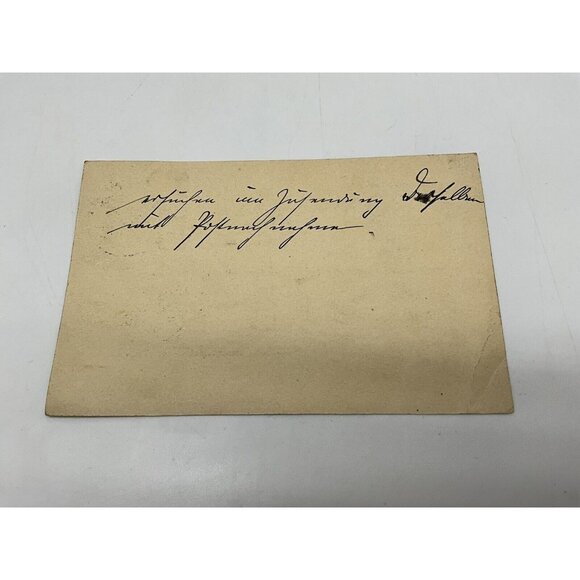 ersuchen um Zusendung derselben
mit Postnachnahme.